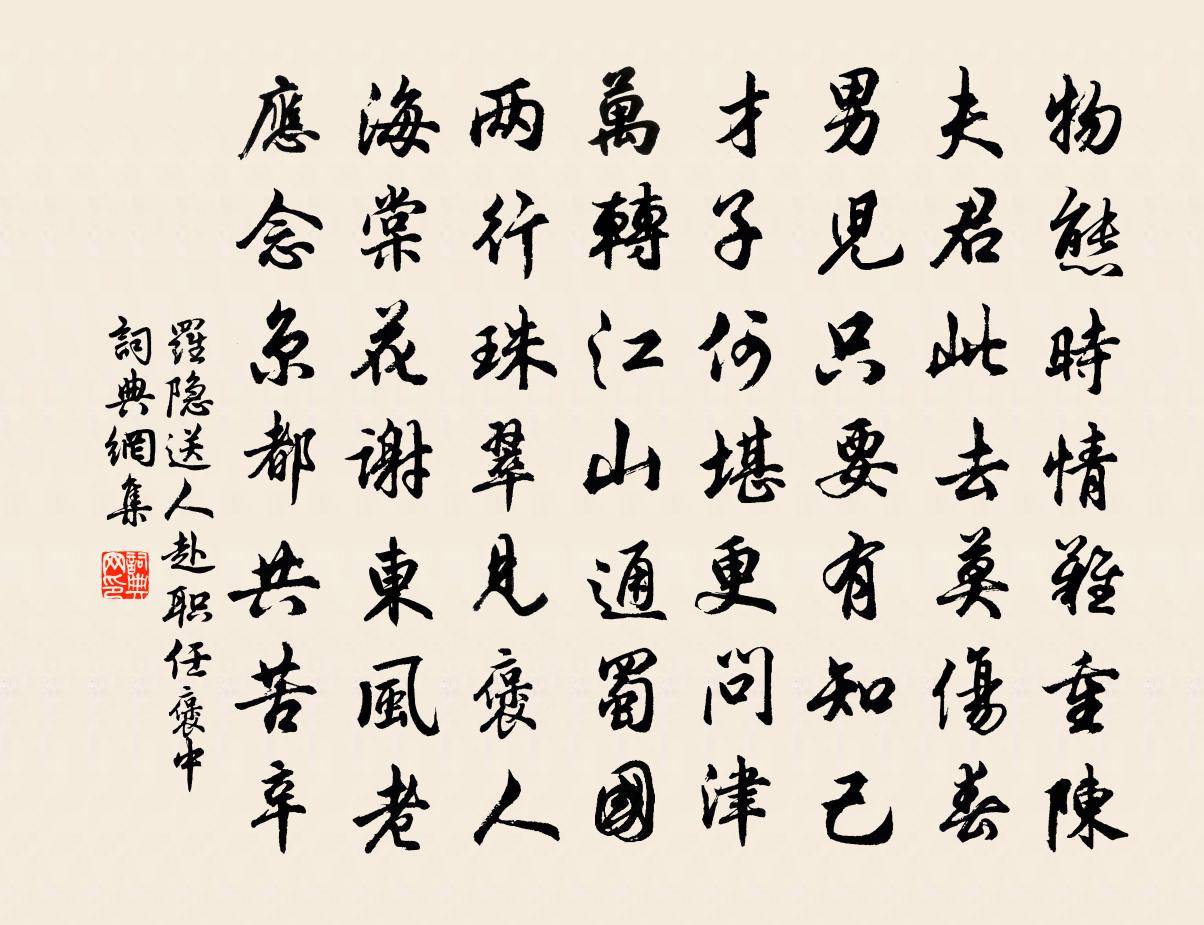 物態時情難重陳
夫君此去莫傷春
男児只要有知己
才子何堪更問津
萬轉江山通蜀國
两行珠翠見褒人
海棠花謝東風老
應念京都共苦辛
羅隐送人赴职任褒中
詞典網集
詞典网印